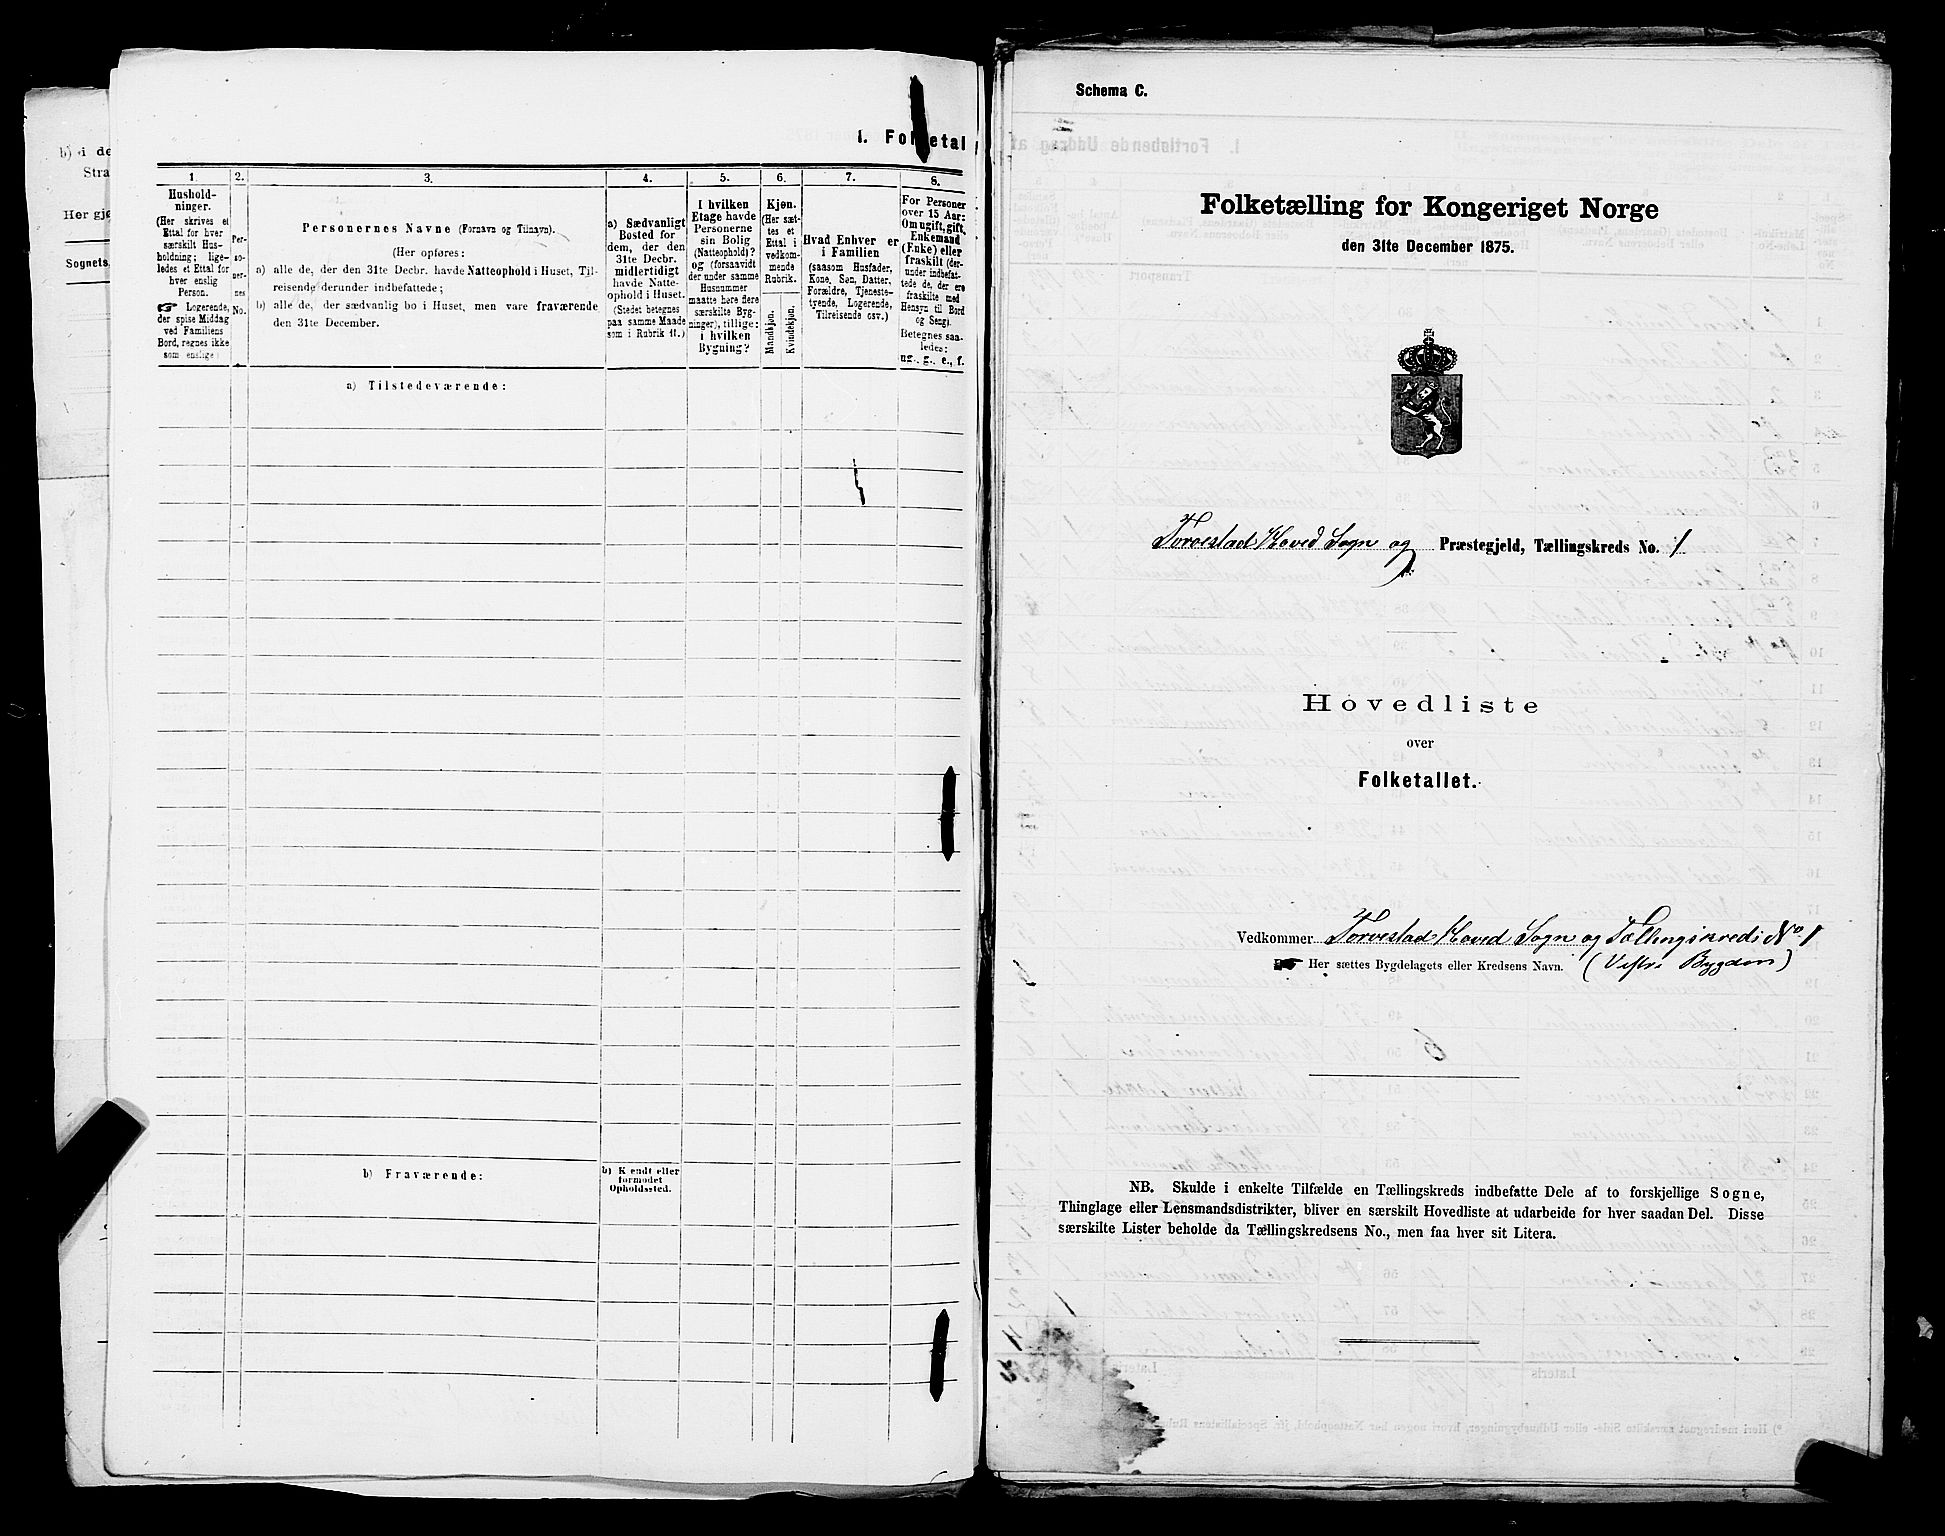 b) i de
Stra
Her gjø
Sognets
I. Folketal
1.
Hushold-
ninger.
(Her skrives et
Ettal for hver
særskilt Hus-
holdning; lige-
ledes et Ettal for
hver enslig
Person.
☞ Logerende,
der spise Middag
ved Familiens
Bord, regnes ikke
som enslige)
2.
Per-
so-
ner-
nes
No.
3.
Personernes Navne (Fornavn og Tilnavn).
(Her opføres:
a) alle de, der den 31te Decbr. havde Natteophold i Huset, Til-
reisende derunder indbefattede;
b) alle de, der sædvanlig bo i Huset, men vare fraværende
den 31te December.
4.
a) Sædvanligt
Bosted for
dem, der den
31te Decbr.
midlertidigt
havde Natte-
ophold i Huset.
(Stedet betegnes
paa samme Maade
som i Rubrik 11.)
5.
I hvilken
Etage havde
Personerne
sin Bolig
(Natteophold)?
og (forsaavidt
der under samme
Husnummer
maatte høre flere
særskilte Byg-
ninger), tillige:
i hvilken
Bygning?
6.
Kjøn.
(Her sæt-
tes et
Ettal i
vedkom-
mende
Rubrik.
Mandkjøn.
Kvindekjøn.
7.
Hvad Enhver er
i Familien
(saasom Husfader,
Kone, Søn, Datter,
Forældre, Tjeneste-
tyende, Logerende,
Tilreisende osv.)
8.
For Personer
over 15 Aar:
Om ugift, gift,
Enkemand
(Enke) eller
fraskilt (der-
under indbefat-
tede de, der ere
fraskilte med
Hensyn til Bord
og Seng).
Betegnes saa-
ledes:
ug., g., e., f.
a) Tilstedeværende:
b) Fraværende:
b) Kjendt eller
formodet
Opholdssted.
Schema C.
Folketælling for Kongeriget Norge
den 31te December 1875.
Torvestad Hoved Sogn og Præstegjeld, Tællingskreds No. 1
Hovedliste
over
Folketallet.
Vedkommer Torvestad Hoved Sogn og Tællingskreds No. 1
☞ Her sættes Bygdelagets eller Kredsens Navn. (Vestre Bygden)
6
NB. Skulde i enkelte Tilfælde en Tællingskreds indbefatte Dele af to forskjellige Sogne,
Thinglage eller Lensmandsdistrikter, bliver en særskilt Hovedliste at udarbeide for hver saadan Del. Disse
særskilte Lister beholde da Tællingskredsens No., men faa hver sit Litera.